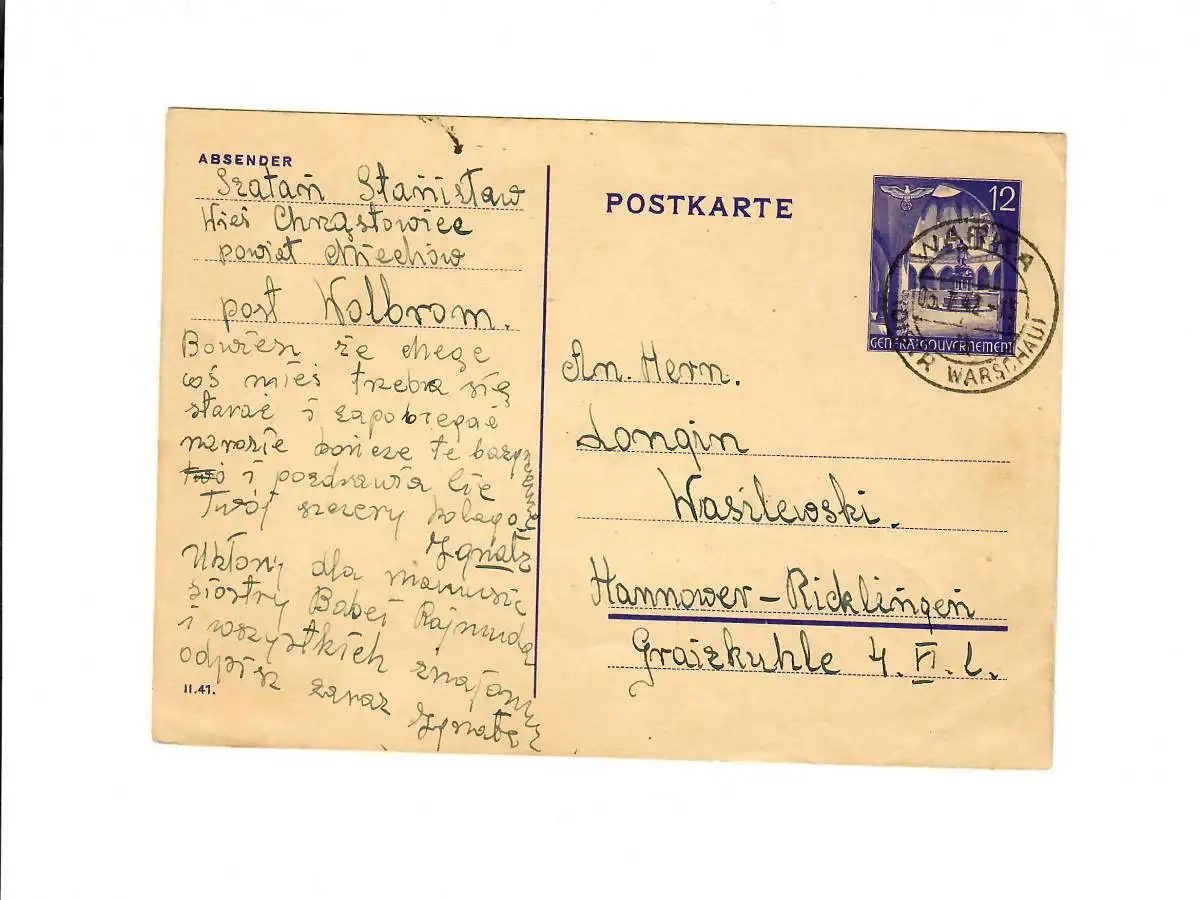 ABSENDER
Szatań Stanisław
Wieś Chrąstowice
powiat Miechów
post Wolbrom.
Bowiem że chcę
coś mieś trzeba się
starać i zapobiegać
narazie kończe te bazgraninę
i pozdrawia Cię
Twój szczery kolega
Ignatz
Ukłony dla mamusię
siostry Babci Rajmunda
i wszystkich znajomyz
odpisz zaraz Ignatz
II.41.
POSTKARTE
12
GENERALGOUVERNEMENT
WARKA
WARSCHAU
An. Hern.
Longin
Wasilewski.
Hannower-Ricklingen
Graizkuhle 4. II. l.